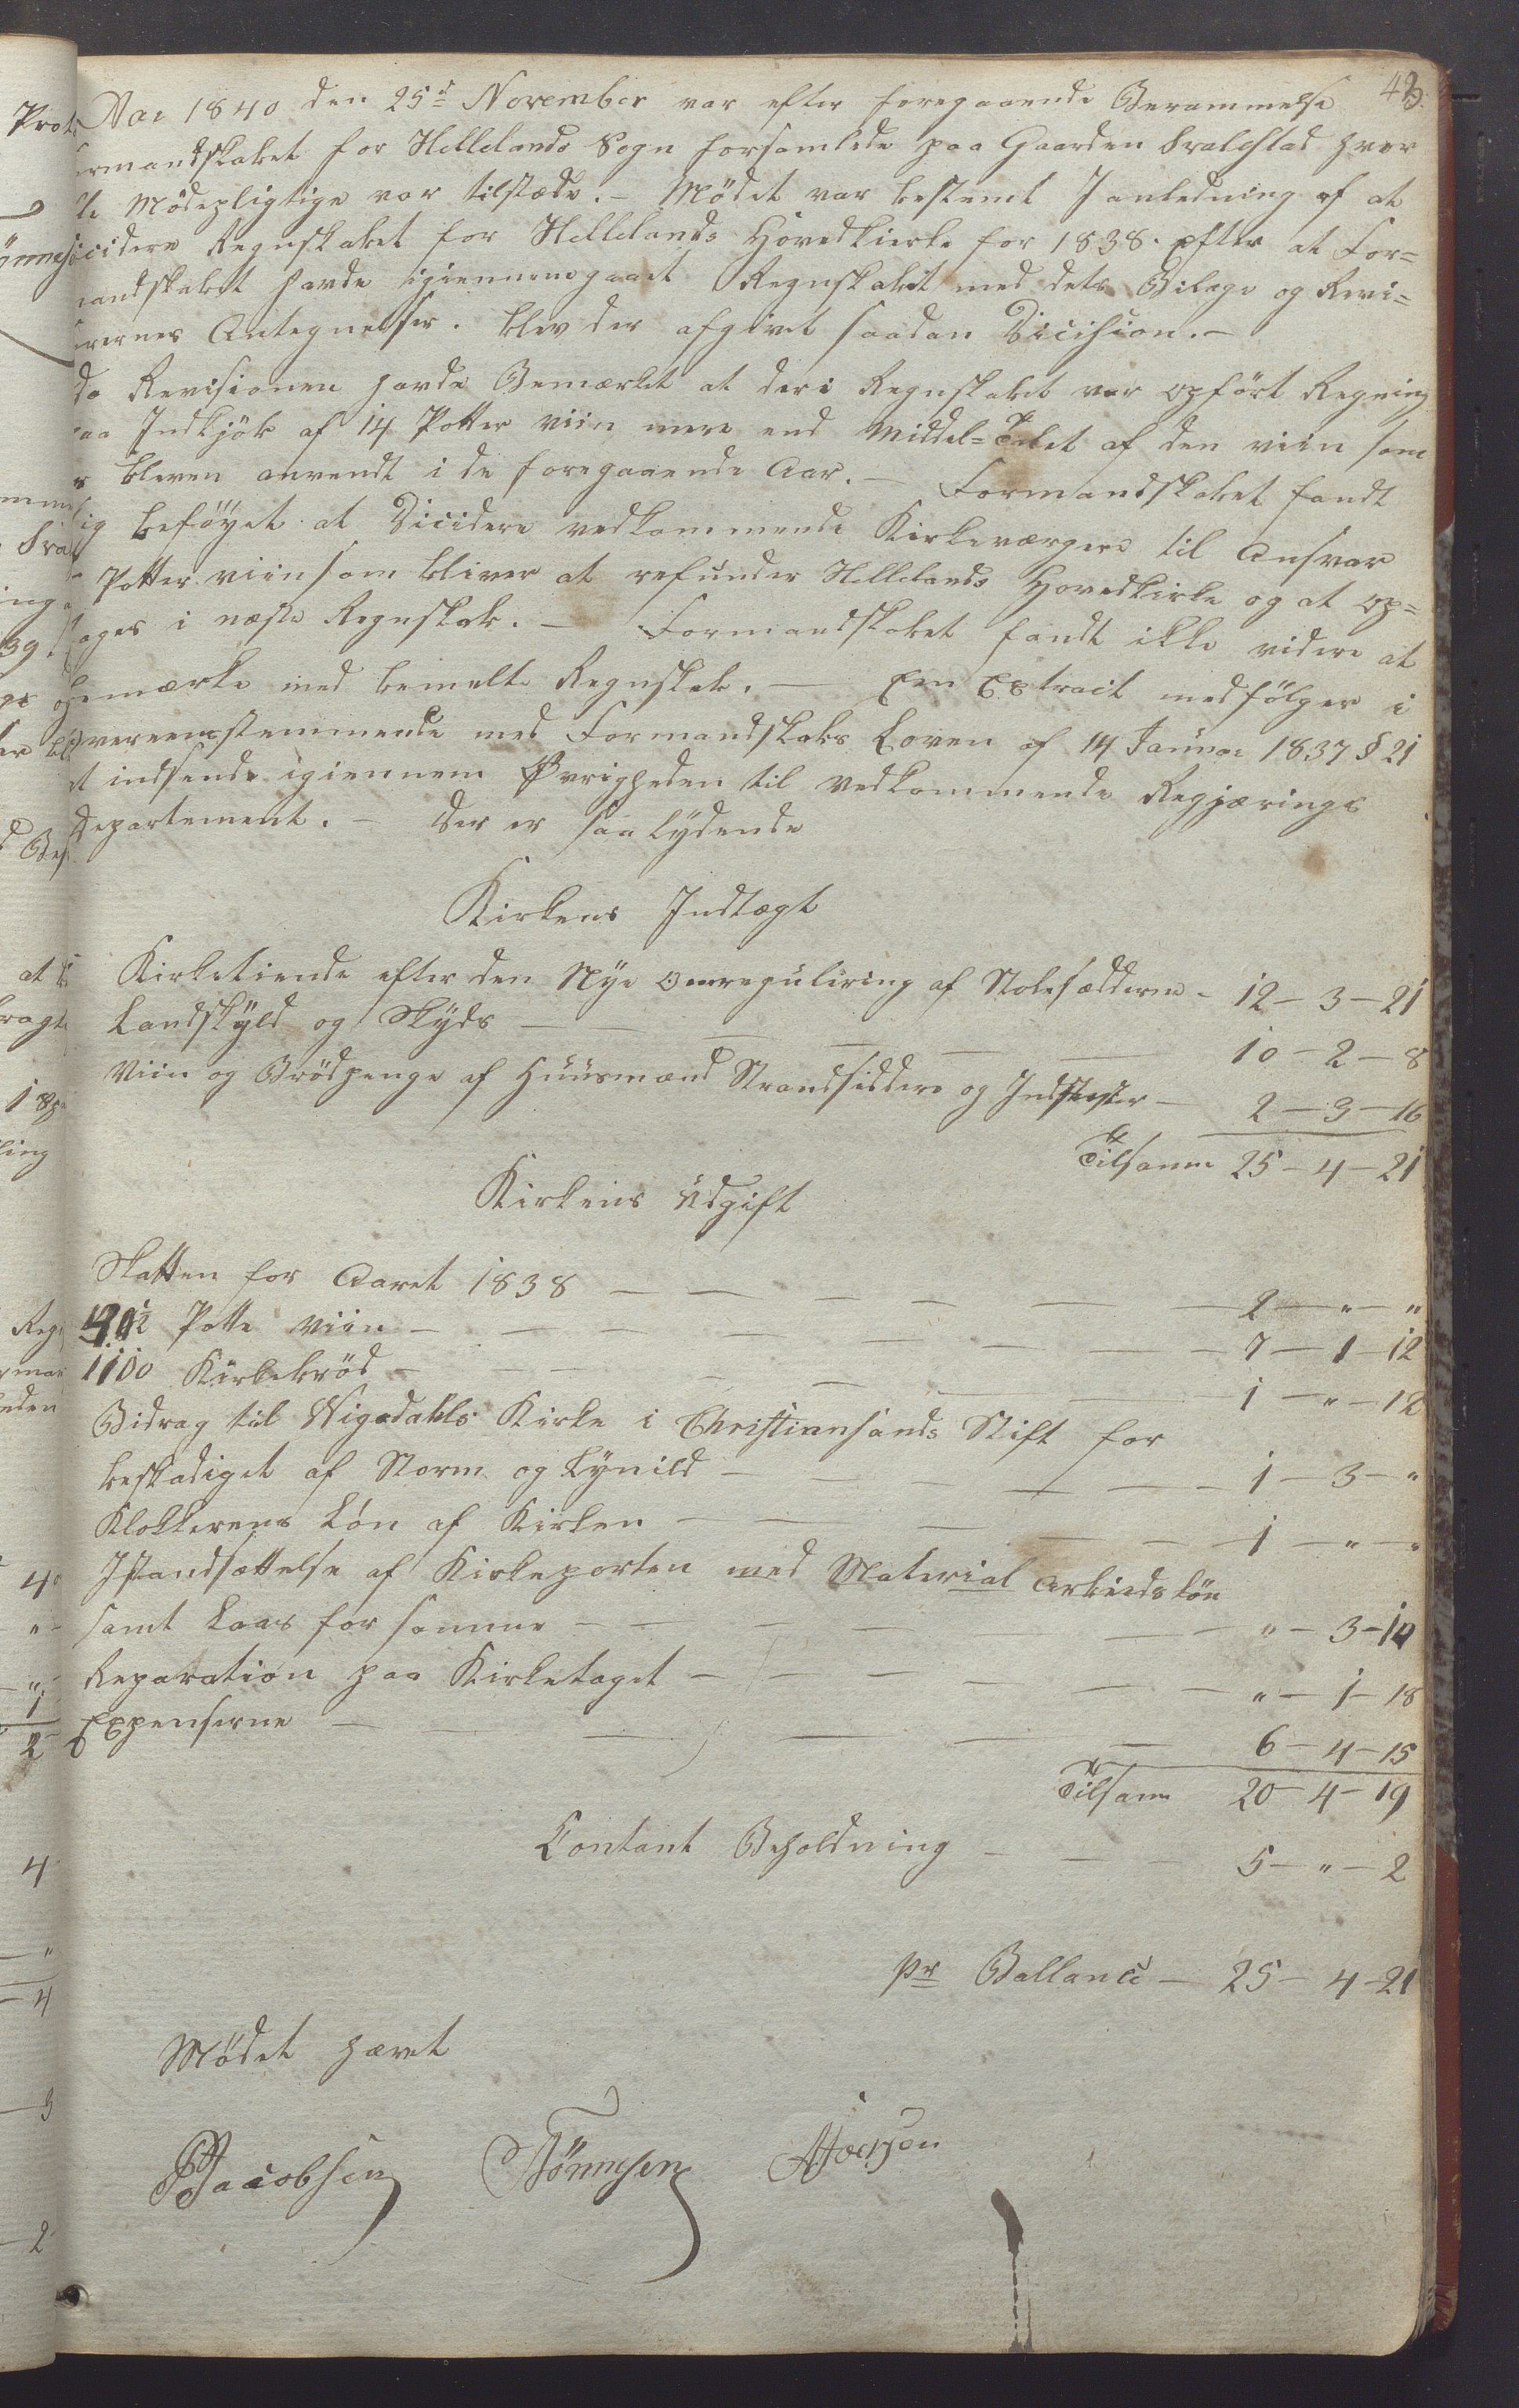 43.
Aar 1840 den 25de November var efter foregaaende Berammelse
ormandskabet for Hellelands Sogn forsamlede paa Gaarden Svalestad hvor
le Mödepligtige var tilstæde. – Mödet var bestemt I anledning af at
icidere Regnskabet for Hellelands Hovedkierke for 1838. Efter at For=
mandskabet havde igiennemgaaet Regnskabet med dets Bilage og Revi=
orernes Antegnelser. blev der afgivet saadan Dicision. –
Da Revisionen havde Bemærket at der i Regnskabet var opfört Regning
paa Indkjöb af 14 Potter viin mere end Middel=Talet af den viin som
er bleven anvendt i de foregaaende Aar. – Formandskabet fandt
sig beföyet at Dicidere vedkommende Kirkeværgere til Ansvar
Potter viin som bliver at refunder Hellelands Hovedkirke og at op=
tages i næste Regnskab. – Formandskabet fandt ikke videre at
bemærke med bemelte Regnskab. – Een Extrait medfölger i
overeenstemmende med Formandskabs Loven af 14 Januar 1837 § 21
at indsende igiennem Øvrigheden til vedkommende Regjærings
Departement. – Der er saa lydende
Kirkens Indtægt
Kirketiende efter den Nye Omreguliring af Stolesædderne – 12 – 3 – 21
Landskyld og Skyds – 10 – 2 – 8
Viin og Brödpenge af Huusmænd Strandsiddere og Inderster – 2 – 3 – 16
Tilsamm 25 – 4 – 21
Kirkens Udgift
Skatten for Aaret 1838 – 2 – " – "
Potte viin – 7 – 1 – 12
1100 Kirkebröd – 1 – " – 12
Bidrag til Wigedahls Kirke i Christiansands Stift for
beskadiget af Storm og Lynild – 1 – 3 – "
Klokkerens Lön af Kirken – 1 – " – "
Istandsættelse af Kirkeporten med Material Arbeidslön
samt Laas for samme – " – 3 – 10
Reparation paa Kirketaget – " – 1 – 18
Expenserne – 6 – 4 – 15
Tilsam 20 – 4 – 19
Contant Beholdning – 5 – " – 2
pr Ballance – 25 – 4 – 21
Mödet hævet
Jacobsen Tönnesen